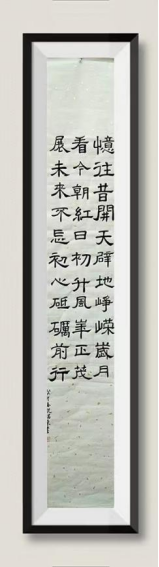 憶往昔開天辟地崢嶸歲月
看今朝紅日初升風華正茂
展未來不忘初心砥礪前行